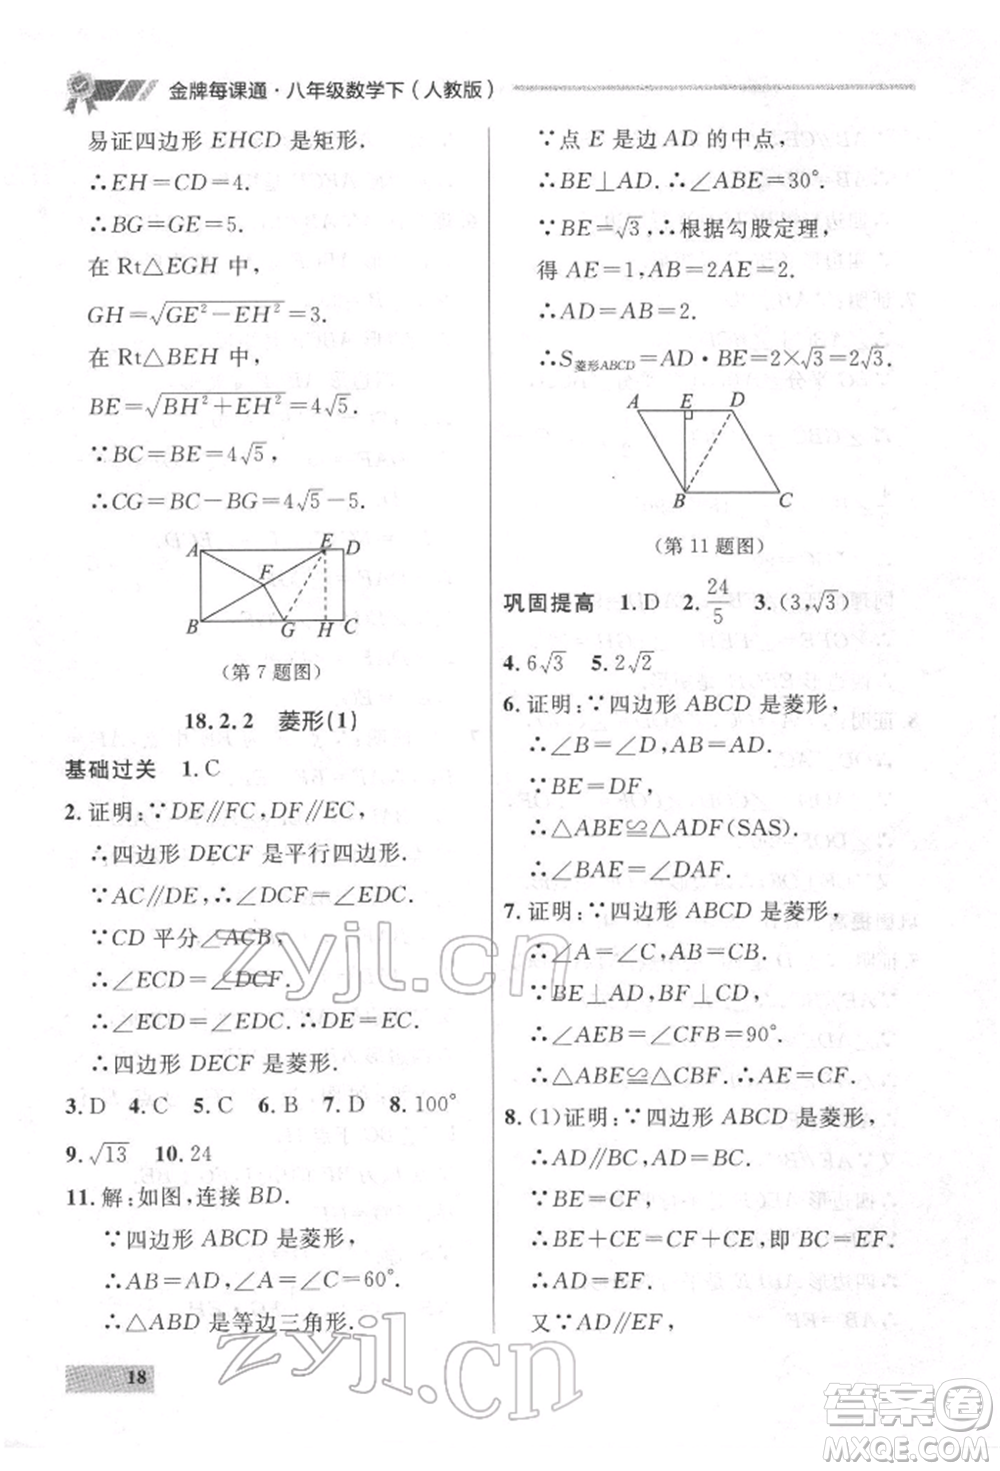 金牌每课通·八年级数学下(人教版)
易证四边形 EHCD 是矩形.
∴EH=CD=4.
∴BG=GE=5.
在 Rt△EGH 中,
GH=√(GE²-EH²)=3.
在 Rt△BEH 中,
BE=√(BH²+EH²)=4√5.
∵BC=BE=4√5,
∴CG=BC-BG=4√5-5.
A E D
F
B G H C
(第 7 题图)
18.2.2 菱形(1)
基础过关 1.C
2.证明:∵DE∥FC,DF∥EC,
∴四边形 DECF 是平行四边形.
∵AC∥DE,∴∠DCF=∠EDC.
∵CD 平分∠ACB,
∴∠ECD=∠DCF.
∴∠ECD=∠EDC.∴DE=EC.
∴四边形 DECF 是菱形.
3.D 4.C 5.C 6.B 7.D 8.100°
9.√13 10.24
11.解:如图,连接 BD.
∵四边形 ABCD 是菱形,
∴AB=AD,∠A=∠C=60°.
∴△ABD 是等边三角形.
18
∵点 E 是边 AD 的中点,
∴BE⊥AD.∴∠ABE=30°.
∵BE=√3,∴根据勾股定理,
得 AE=1,AB=2AE=2.
∴AD=AB=2.
∴S菱形ABCD=AD·BE=2×√3=2√3.
A E D
B C
(第 11 题图)
巩固提高 1.D 2.24/5 3.(3,√3)
4.6√3 5.2√2
6.证明:∵四边形 ABCD 是菱形,
∴∠B=∠D,AB=AD.
∵BE=DF,
∴△ABE≌△ADF(SAS).
∴∠BAE=∠DAF.
7.证明:∵四边形 ABCD 是菱形,
∴∠A=∠C,AB=CB.
∵BE⊥AD,BF⊥CD,
∴∠AEB=∠CFB=90°.
∴△ABE≌△CBF.∴AE=CF.
8.(1)证明:∵四边形 ABCD 是菱形,
∴AD∥BC,AD=BC.
∵BE=CF,
∴BE+CE=CF+CE,即 BC=EF.
∴AD=EF.
又∵AD∥EF,
zyjl.cn
zyjl.cn
答案圈
MXQE.COM